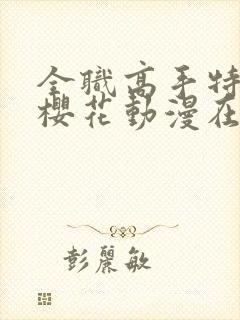 全職高手特
櫻花動漫在
彭麗敏